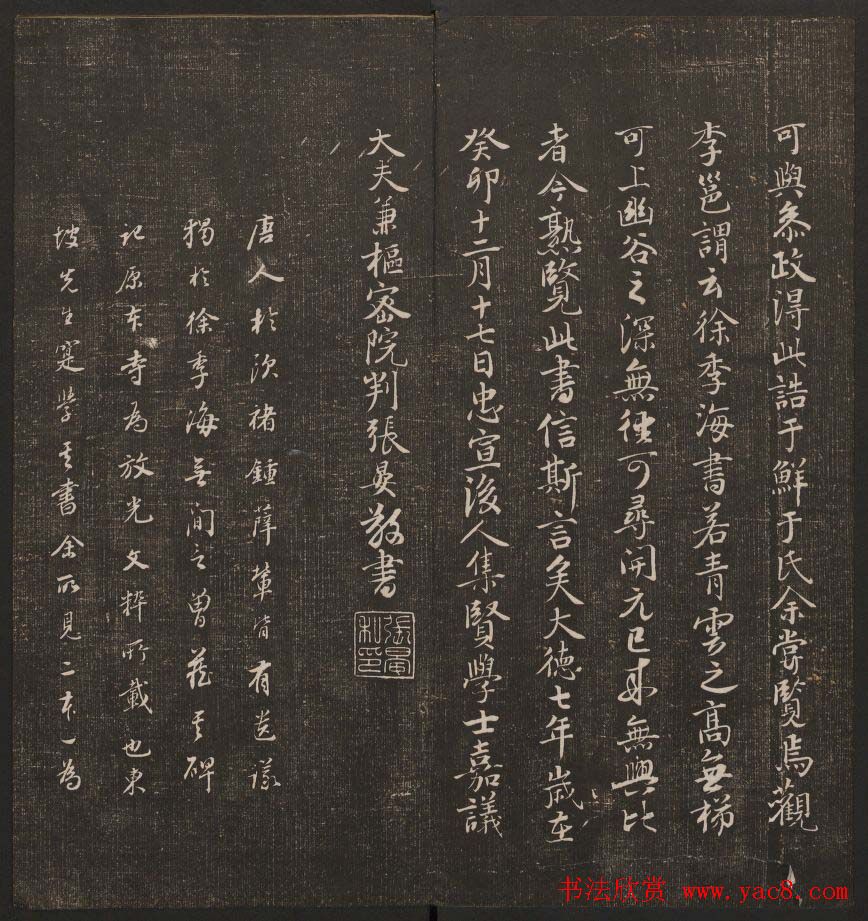 可與叅政淂此誥于鮮于氏余甞覽焉觀
李邕謂云徐季海書若青雲之髙無梯
可上幽谷之深無徑可尋開元已来無與比
者今熟覽此書信斯言矣大德七年歲在
癸卯十二月十七日忠宣後人集賢學士嘉議
大夫兼樞密院判張晏敬書
張晏私印
唐人於歐褚鍾薛輩皆有造議
獨於徐季海無間之曽蔵其碑
記原本寺為放光文粹所載也東
坡先生寔學其書余所見二本一為
书法欣赏 www.yac8.com